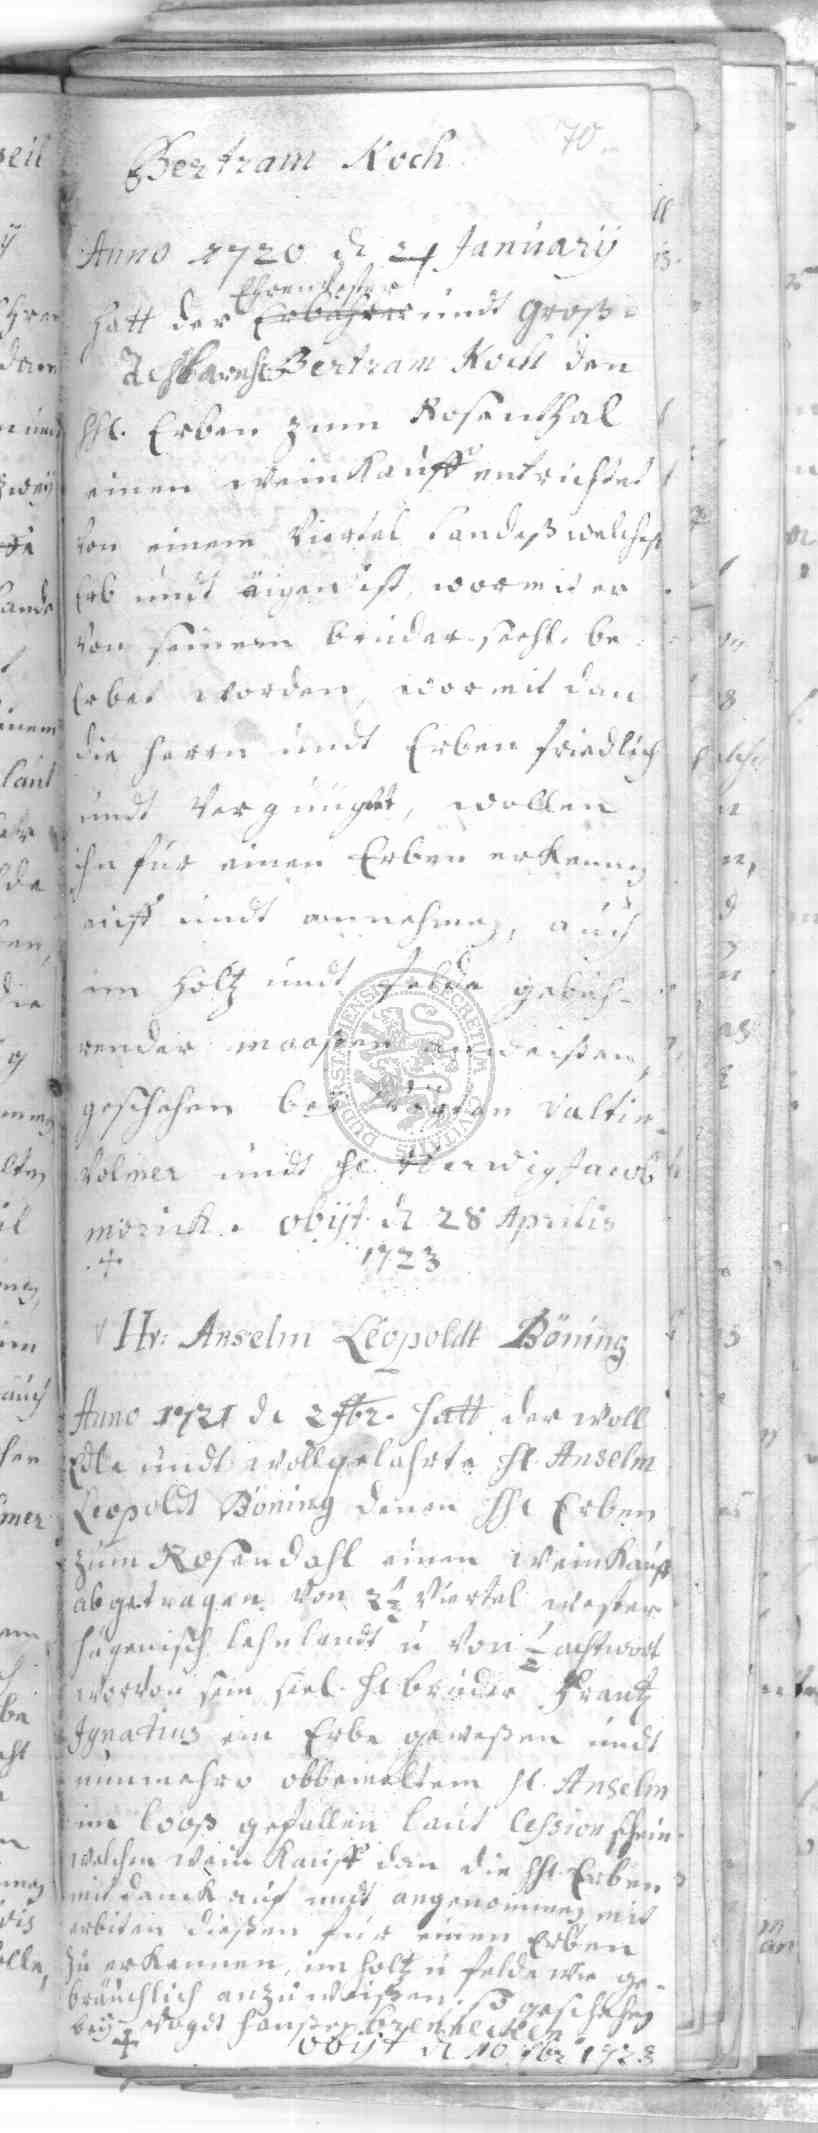 70.
Bertram Koch
Anno 1720 d 21 Januarij
Ehrenvester
hatt der Erbahrer undt groß-
Achtbarer H. Bertram Koch den
HH. Erben zum Rosenthal
einen Weinkauff entrichtet
von einem Viertel Landeß welcheß
Erb undt äigen ist, wormit er
von seinem bruder seehl. be
Erbet worden, wormit dan
die Herrn undt Erben friedlich
undt Vergnüget, wollen
ihn für einen Erben erkennen
auff undt annehmen, auch
im Holtz undt felde gebüh-
render maaßen anweißen,
geschehen bey Valtin
Volmer undt H. Herwig Jacob
mörick. obijt d 28 Aprilis
1723
Hr: Anselm Leopoldt Böning
Anno 1721 d 2 fbr. hatt der Woll
Edle undt Wollgelahrte H. Anselm
Leopoldt Böning denen HH Erben
zum Rosendahl einen Weinkauff
abgetragen von 2½ Viertel Wester
hägenisch lehnlandt u von ½ achtwort
worvon sein seel. H bruder Frantz
Ignatius ein Erbe geweßen undt
nunmehro obbemeltem H. Anselm
im looß gefallen laut Cession schein
welchen Weinkauff dan die HH. Erben
mit danck auf undt angenommen mit
erbieten dießen für einen Erben
zu erkennen, im Holtz u felde wie ge-
bräuchlich anzuweißen. so geschehen
bey Vogdt Hanßen brennecken
obijt d 10 1723